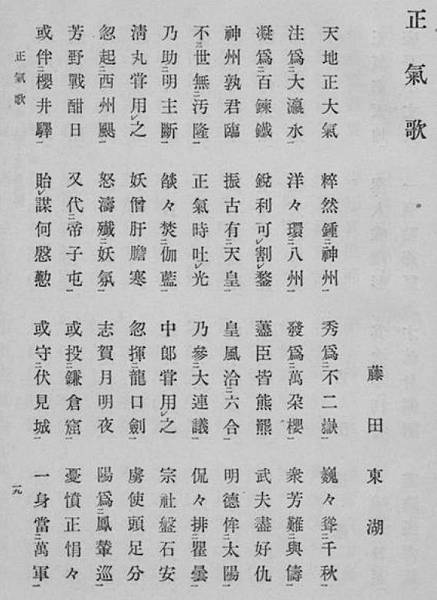 正氣歌
藤田東湖
天地正大氣 粹然鍾神州 秀爲不二嶽 巍々聳千秋
注爲大瀛水 洋々環八州 發爲萬朶櫻 衆芳難與儔
凝爲百錬鐵 鋭利可割鍪 藎臣皆熊羆 武夫盡好仇
神州孰君臨 振古有天皇 皇風洽六合 明德侔太陽
不世無汚隆 正氣時吐光 乃參大連議 侃々排瞿曇
乃助明主斷 燄々焚伽藍 中郎甞用之 宗社盤石安
清丸甞用之 妖僧肝膽寒 忽揮龍口劍 虜使頭足分
忽起西州颶 怒濤殱妖氛 志賀月明夜 陽爲鳳輦巡
芳野戰酣日 又代帝子屯 或投鎌倉窟 憂憤正悁々
或伴櫻井驛 貽謀何慇懃 或守伏見城 一身當萬軍
正氣歌
一九